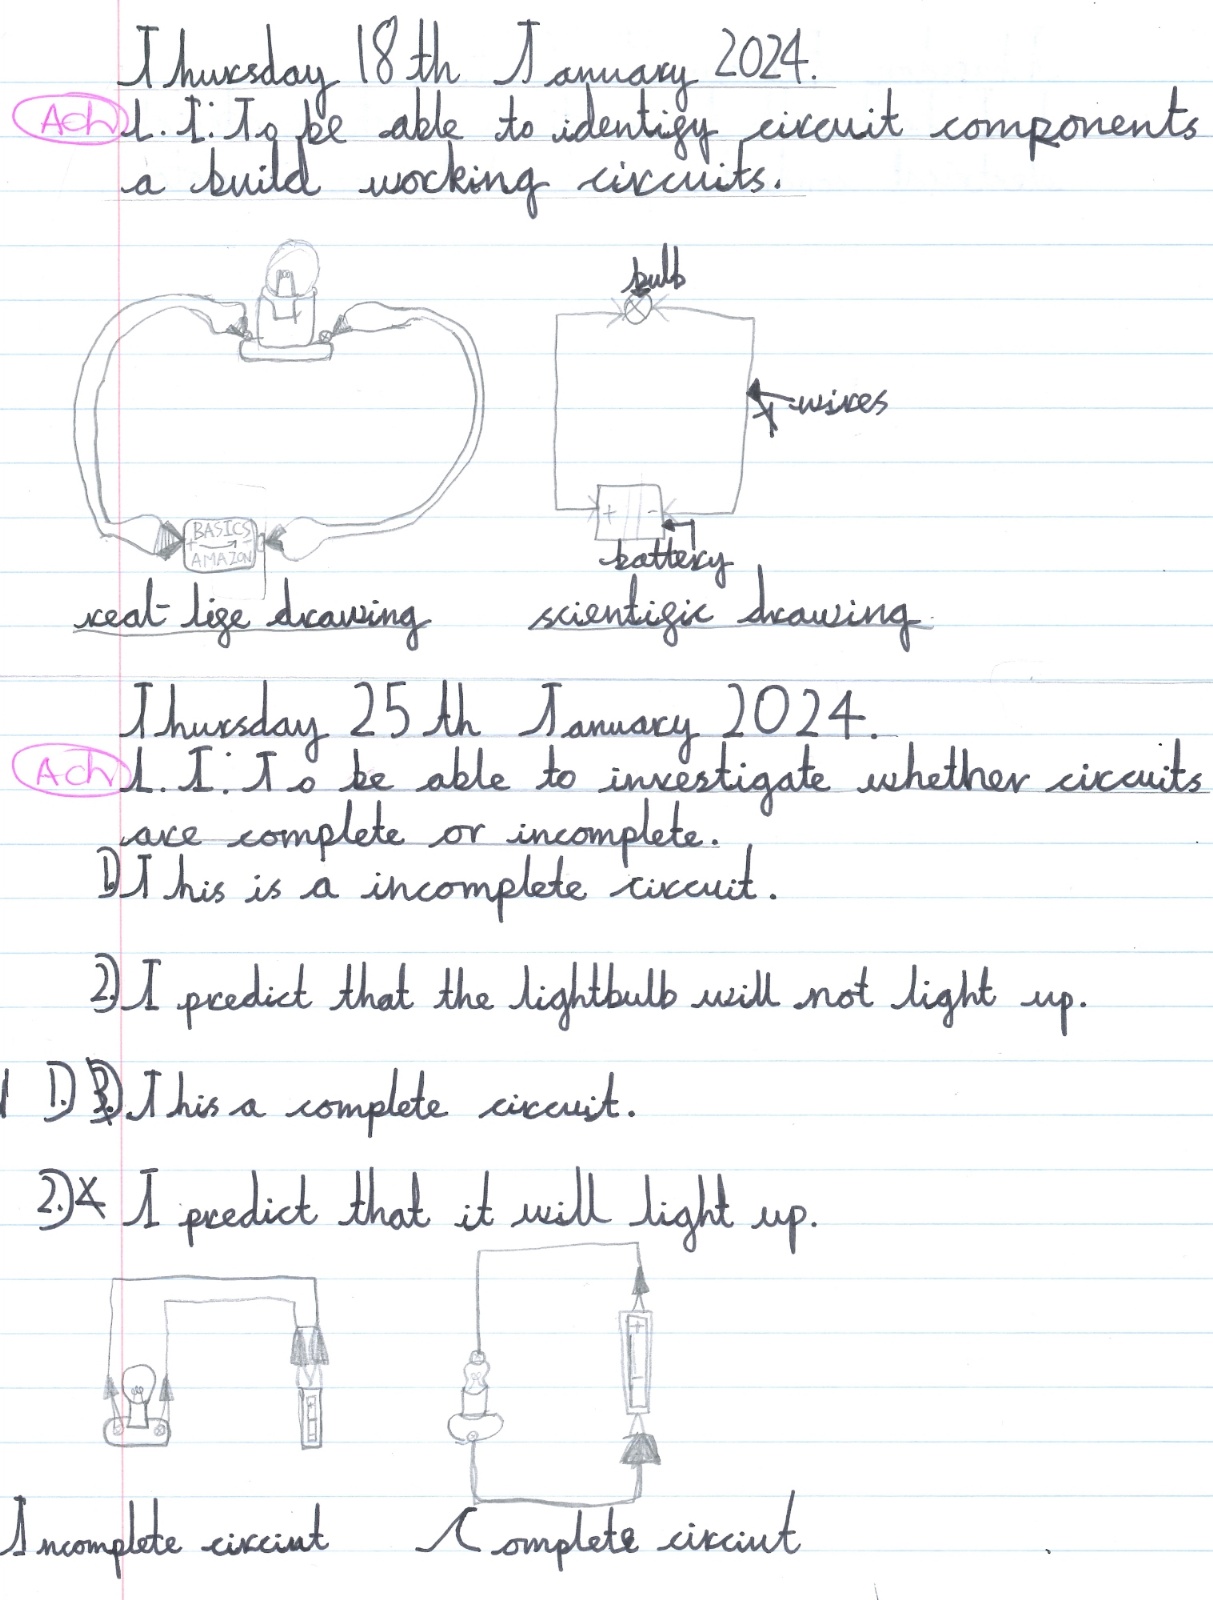 Thursday 18th January 2024.
Ach L.I: To be able to identify circuit components
a build working circuits.
bulb
wires
+ -
BASICS
+ -
AMAZON
battery
real-life drawing scientific drawing
Thursday 25th January 2024.
Ach L.I: To be able to investigate whether circuits
are complete or incomplete.
1) This is a incomplete circuit.
2) I predict that the lightbulb will not light up.
1.) This a complete circuit.
2.) I predict that it will light up.
+
Incomplete circiut Complete circiut